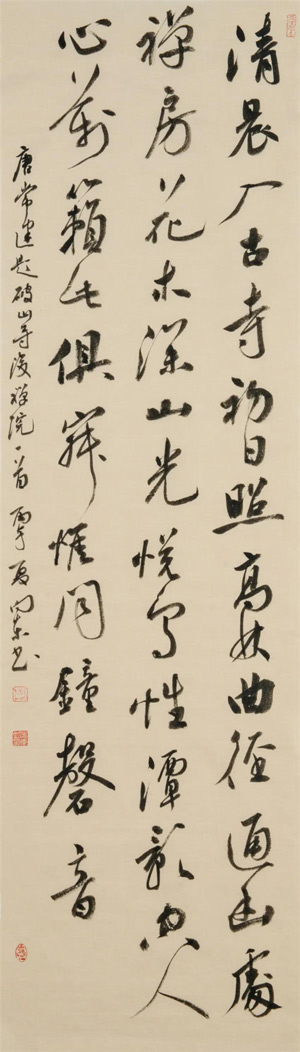 清晨入古寺初日照高林曲徑通幽處
禪房花木深山光悅鳥性潭影空人
心萬籟此俱寂惟聞鐘磬音
唐常建題破山寺後禪院一首 夏 書